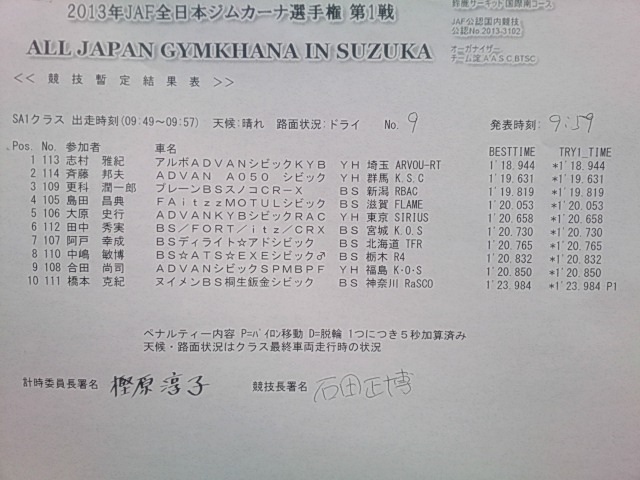 2013年JAF全日本ジムカーナ選手権 第1戦
鈴鹿サーキット 国際南コース
JAF公認国内競技
公認No.2013-3102
ALL JAPAN GYMKHANA IN SUZUKA
オーガナイザー
チーム淀 A.A.S.C, BTSC
<< 競技暫定結果表 >>
SA1クラス 出走時刻(09:49〜09:57) 天候:晴れ 路面状況:ドライ No. 9 発表時刻: 9:59
Pos. No. 参加者 車名 BESTTIME TRY1_TIME
1 113 志村 雅紀 アルボADVANシビックKYB YH 埼玉 ARVOU-RT 1'18.944 *1'18.944
2 114 斉藤 邦夫 ADVAN A050 シビック YH 群馬 K.S.C 1'19.631 *1'19.631
3 109 更科 潤一郎 ブレーンBSスノコCR-X BS 新潟 RBAC 1'19.819 *1'19.819
4 105 島田 昌典 FAitzzMOTULシビック BS 滋賀 FLAME 1'20.053 *1'20.053
5 106 大原 史行 ADVANKYBシビックRAC YH 東京 SIRIUS 1'20.658 *1'20.658
6 112 田中 秀実 BS/FORT/itz/CRX BS 宮城 K.O.S 1'20.730 *1'20.730
7 107 阿戸 幸成 BSディライト☆アドシビック BS 北海道 TFR 1'20.765 *1'20.765
8 110 中嶋 敏博 BS☆ATS☆EXEシビック♂ BS 栃木 R4 1'20.832 *1'20.832
9 108 合田 尚司 ADVANシビックSPMBPF YH 福島 K-O-S 1'20.850 *1'20.850
10 111 橋本 克紀 ヌイメンBS桐生鈑金シビック BS 神奈川 RaSCO 1'23.984 *1'23.984 P1
ペナルティー内容 P=パイロン移動 D=脱輪 1つにつき5秒加算済み
天候・路面状況はクラス最終車両走行時の状況
計時委員長署名 樫原淳子 競技長署名 石田正博